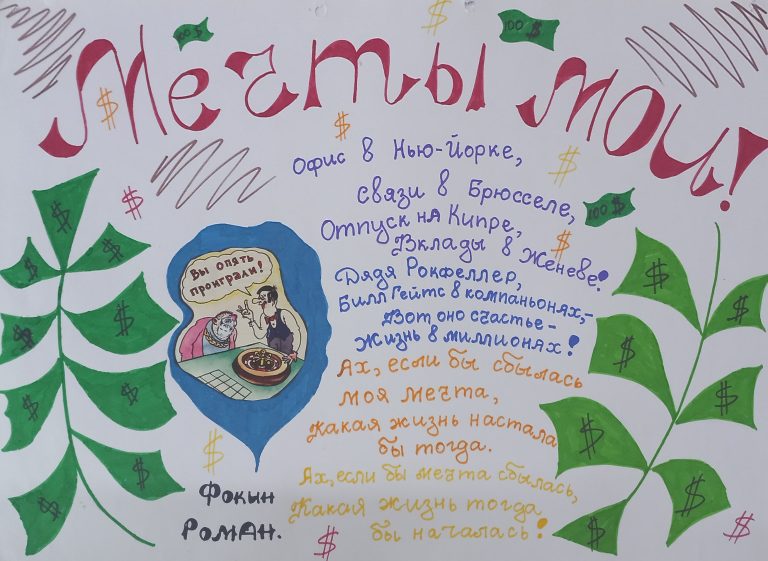 100 $
100 $
Мечты мои!
Офис в Нью-Йорке,
связи в Брюсселе,
Отпуск на Кипре,
Вклады в Женеве!
100 $
Дядя Рокфеллер,
Билл Гейтс в компаньонах,-
Вот оно счастье-
Жизнь в миллионах!
Вы опять
проиграли!
Ах, если бы сбылась
моя мечта,
Какая жизнь настала
бы тогда.
Ах, если бы мечта сбылась,
Какая жизнь тогда
бы началась!
Фокин
Роман.